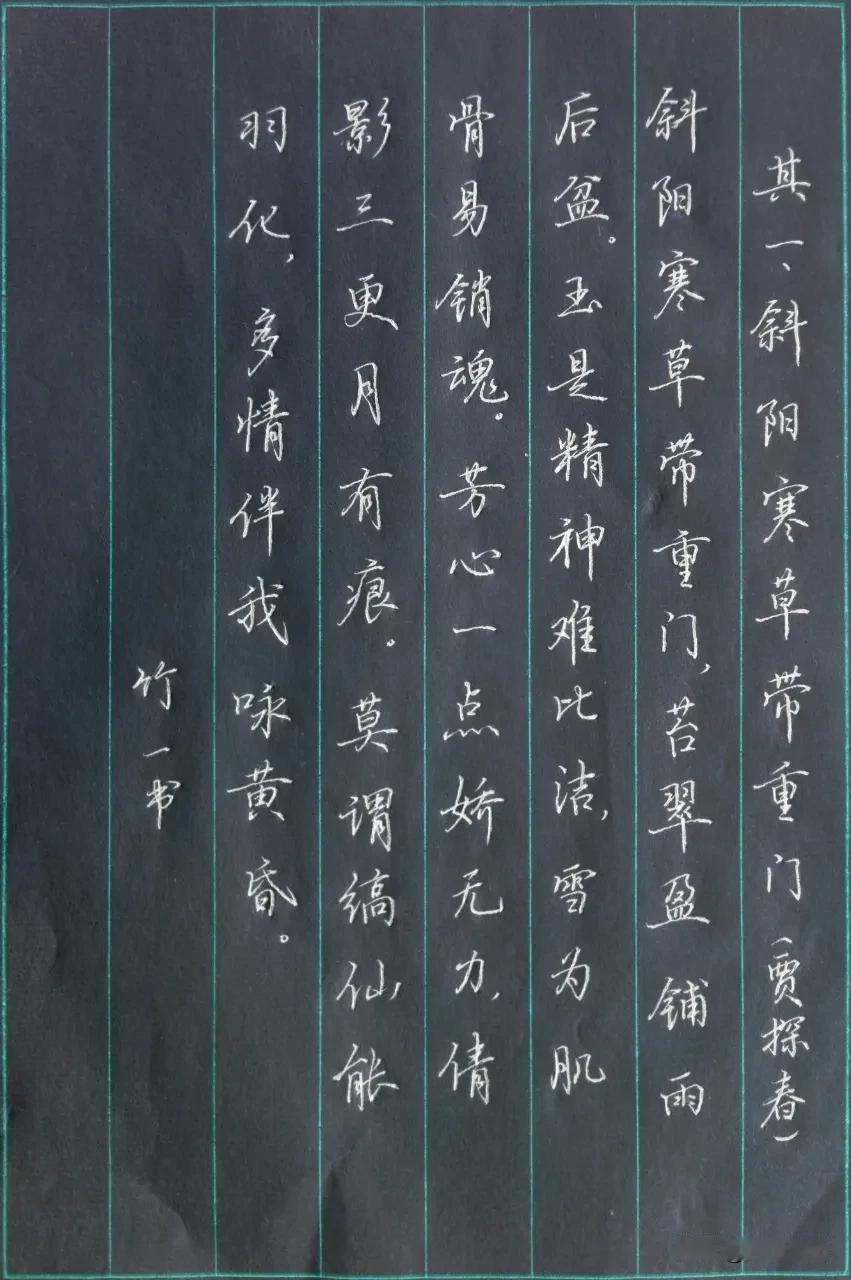 其一、斜阳寒草带重门(贾探春)
斜阳寒草带重门,苔翠盈铺雨
后盆。玉是精神难比洁,雪为肌
骨易销魂。芳心一点娇无力,倩
影三更月有痕。莫谓缟仙能
羽化,多情伴我咏黄昏。
竹一书